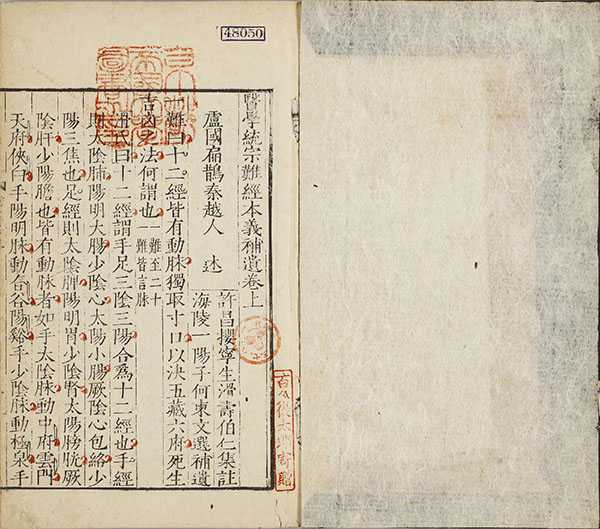 48050
醫學統宗難經本義補遺卷上
盧國扁鵲秦越人 述
許昌攖寧生滑壽伯仁集註
海陵一陽子何柬文選補遺
難曰十二經皆有動脉獨取寸口以決五藏六府死生
吉凶之法何謂也
一難至二十
難皆言脉
滑氏曰十二經謂手足三陰三陽合爲十二經也手經
則太陰肺陽明大腸少陰心太陽小腸厥陰心包絡少
陽三焦也足經則太陰脾陽明胃少陰腎太陽膀胱厥
陰肝少陽膽也皆有動脉者如手太陰脉動中府雲門
天府俠白手陽明脉動合谷陽谿手少陰脉動極泉手